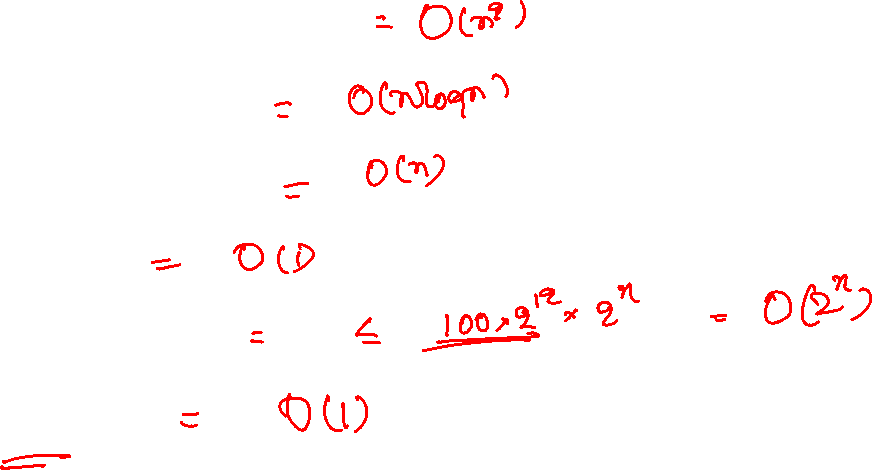 = O(n²)
= O(n√logn)
= O(n)
= O(1)
= ≤ 100 × 2¹² × 2ⁿ = O(2ⁿ)
= O(1)